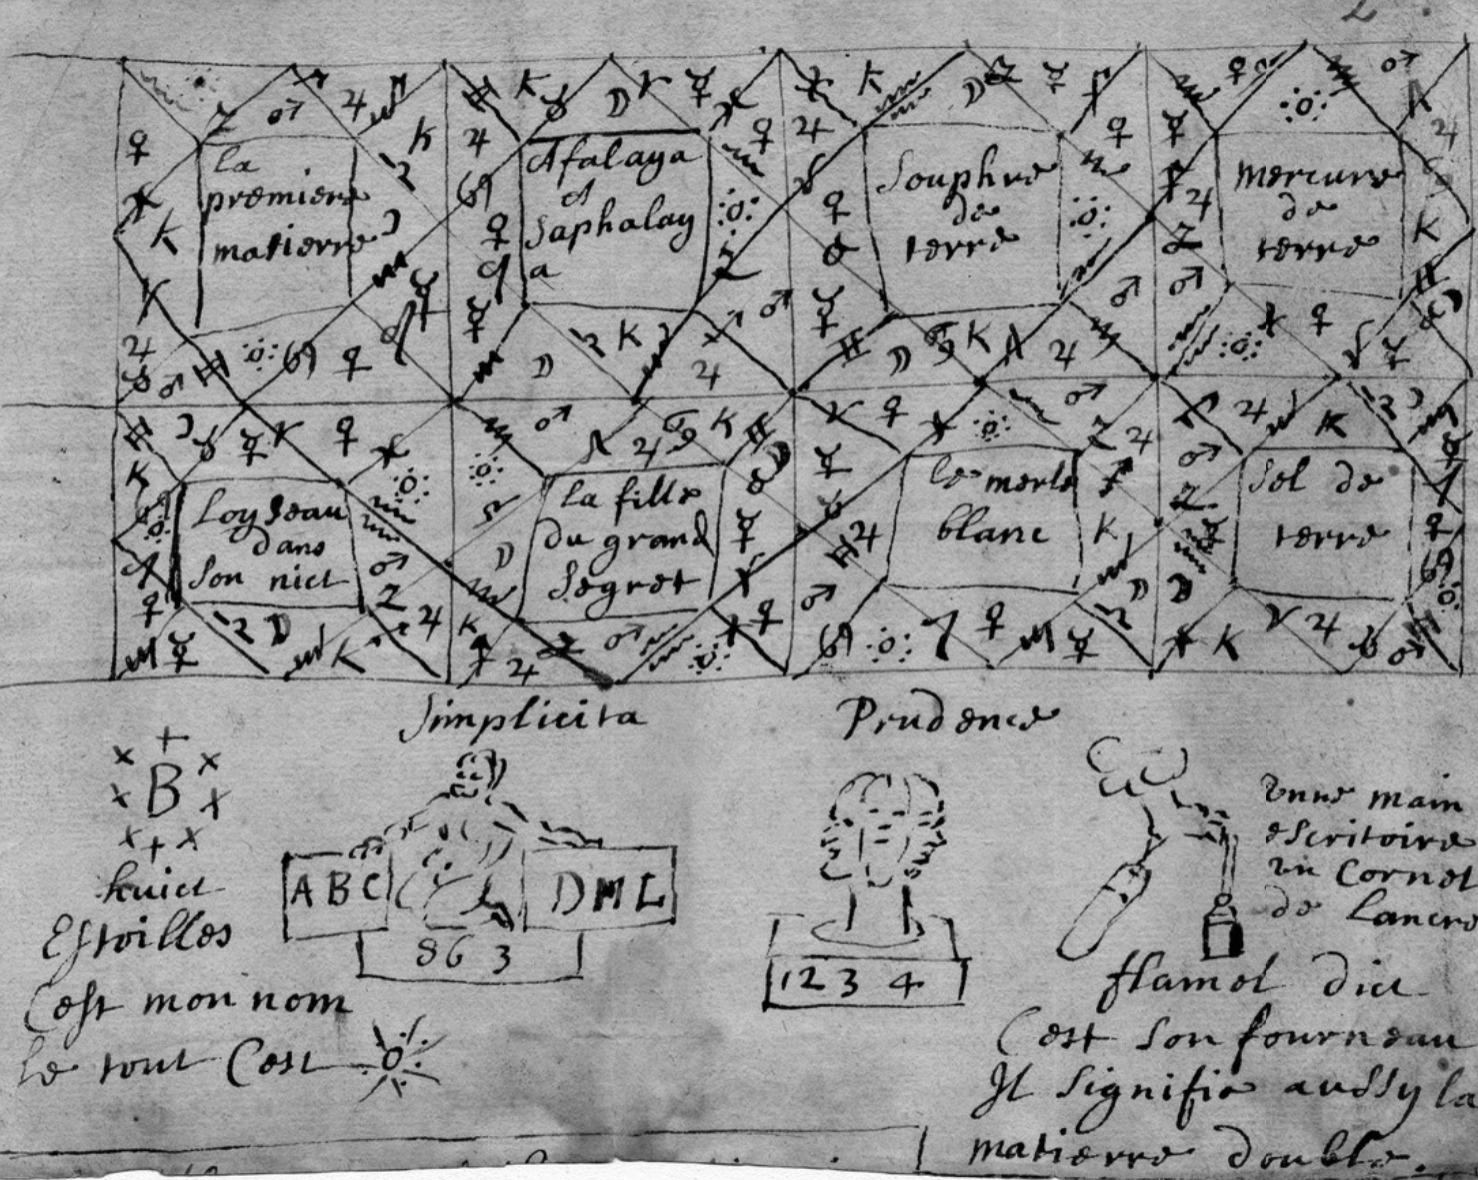 la
premiere
matierre
Afalaya
et
Saphalay
a
Souphre
de
terre
mercure
de
terre
Loyseau
dans
son nict
la fille
du grand
Segret
le merle
blanc
Sel de
terre
Simplicita
Prudence
B
huict
Estoilles
Cest mon nom
le tout Cest
ABC
DML
863
1234
unne main
escritoire
un Cornet
de Lancre
flamel dict
Cest son fourneau
Il signifie aussy la
matierre double.